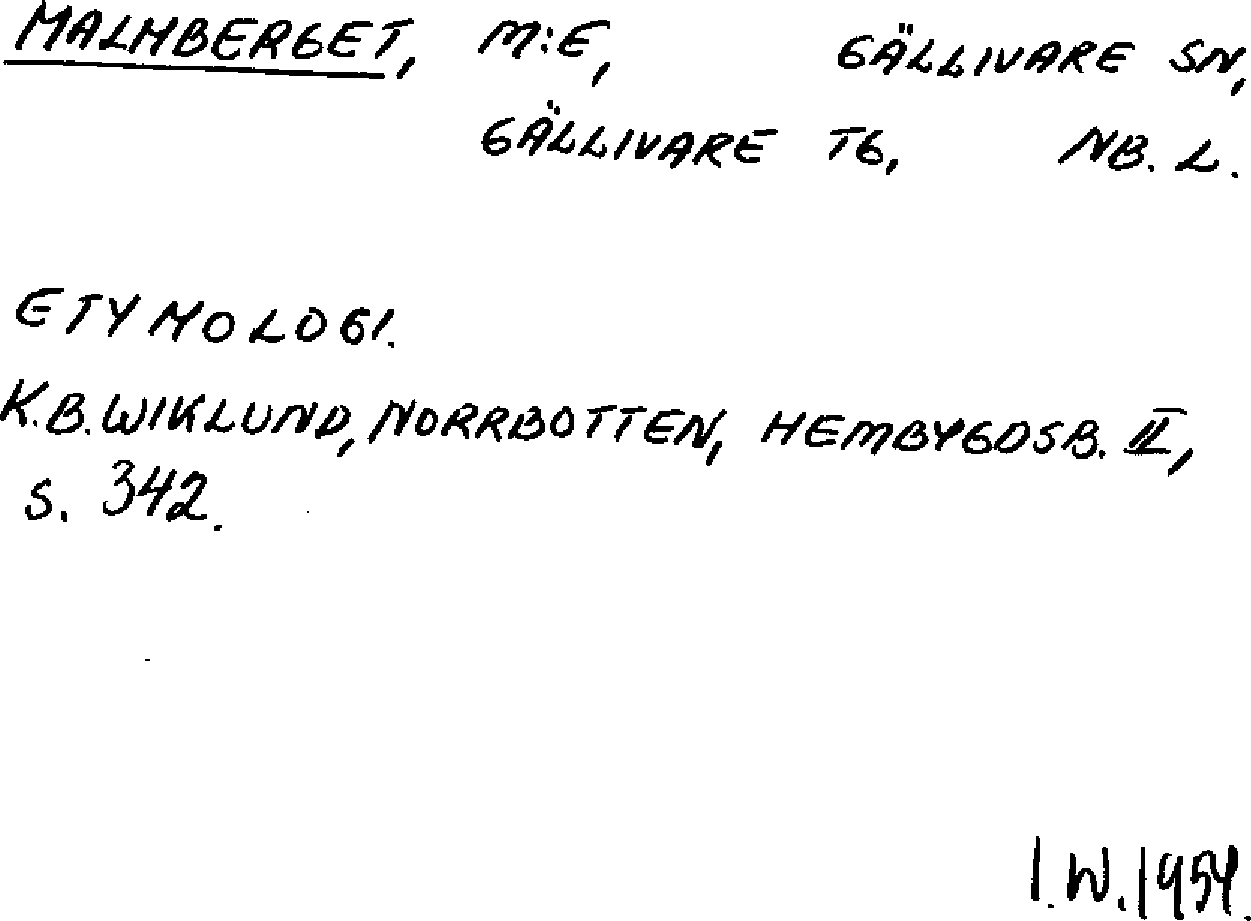 MALMBERGET, M:E, GÄLLIVARE SN,
GÄLLIVARE TG, NB. L.
ETYMOLOGI.
K.B. WIKLUND, NORRBOTTEN, HEMBYGDSB. II,
S. 342.
I.W. 1954.